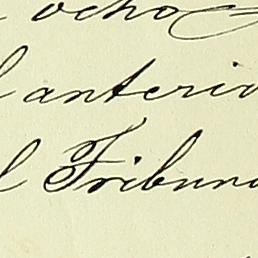 ocho
l anterio
l Tribuna